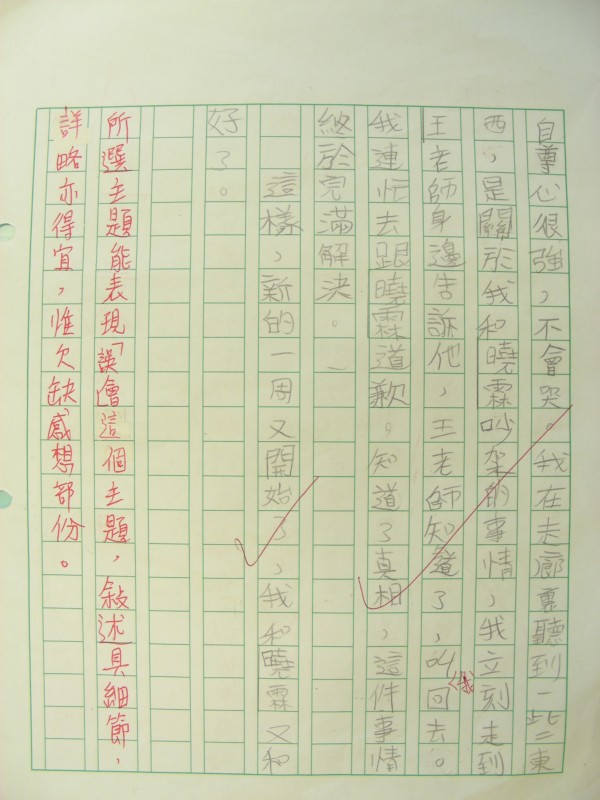 自尊心很強，不會哭。我在走廊裏聽到一些東
西，是關於我和曉霖吵架的事情，我立刻走到
王老師身邊告訴他，王老師知道了，叫我回去。
我連忙去跟曉霖道歉。知道了真相，這件事情
終於完滿解決。
這樣，新的一周又開始了，我和曉霖又和
好了。
所選主題能表現「誤會」這個主題，敍述具細節，
詳略亦得宜，惟欠缺感想部份。